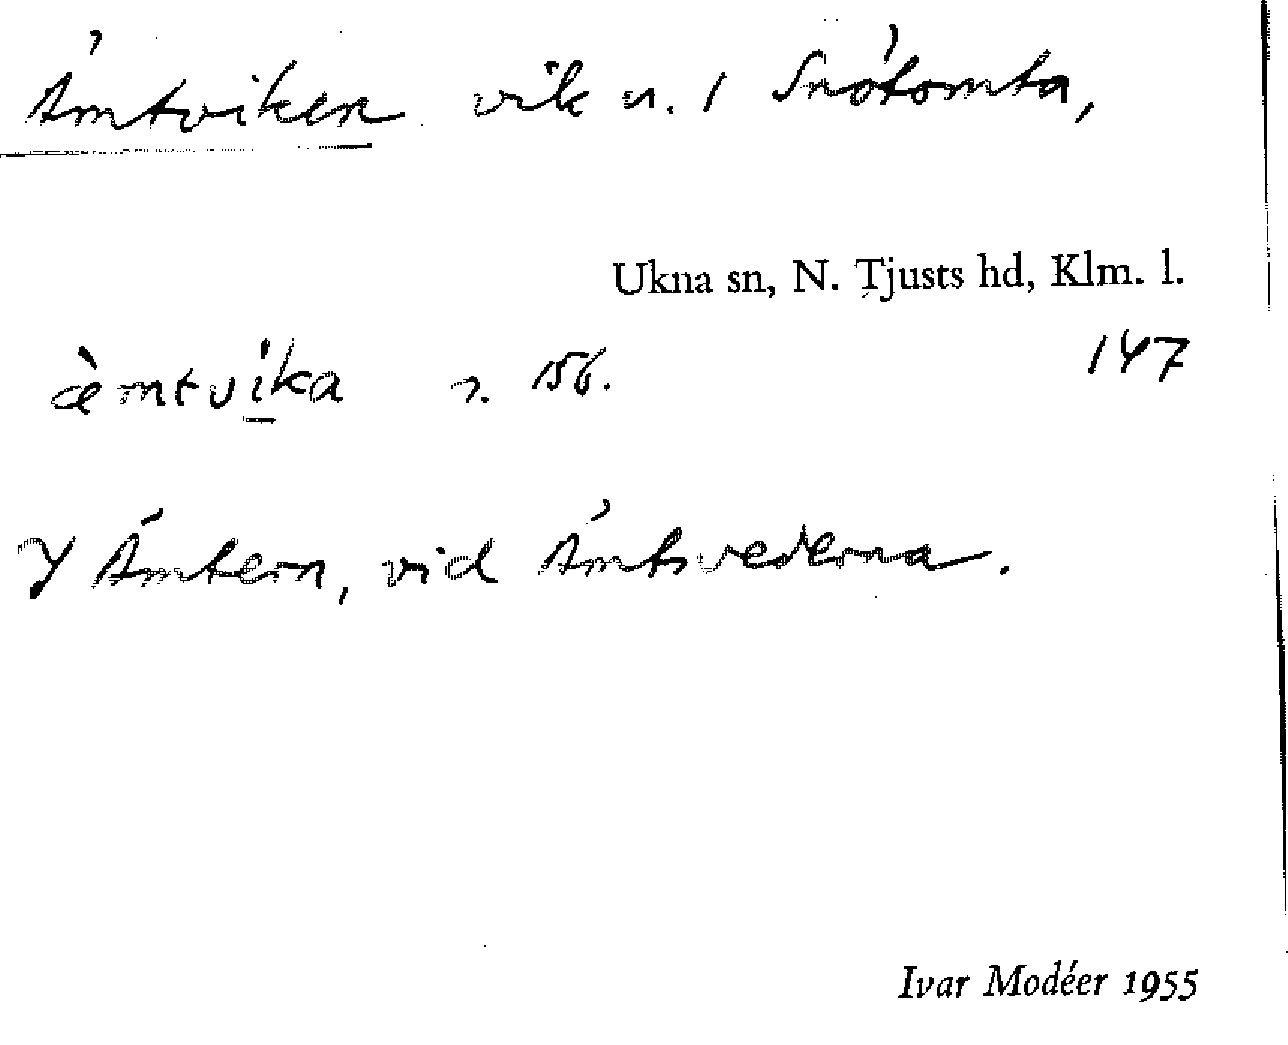 Ämtviken vik u. / Snötomta,
Ukna sn, N. Tjusts hd, Klm. l.
æ̀mtvíka s. 156. 147
I Ämtern, vid Ämtsvederna.
Ivar Modéer 1955